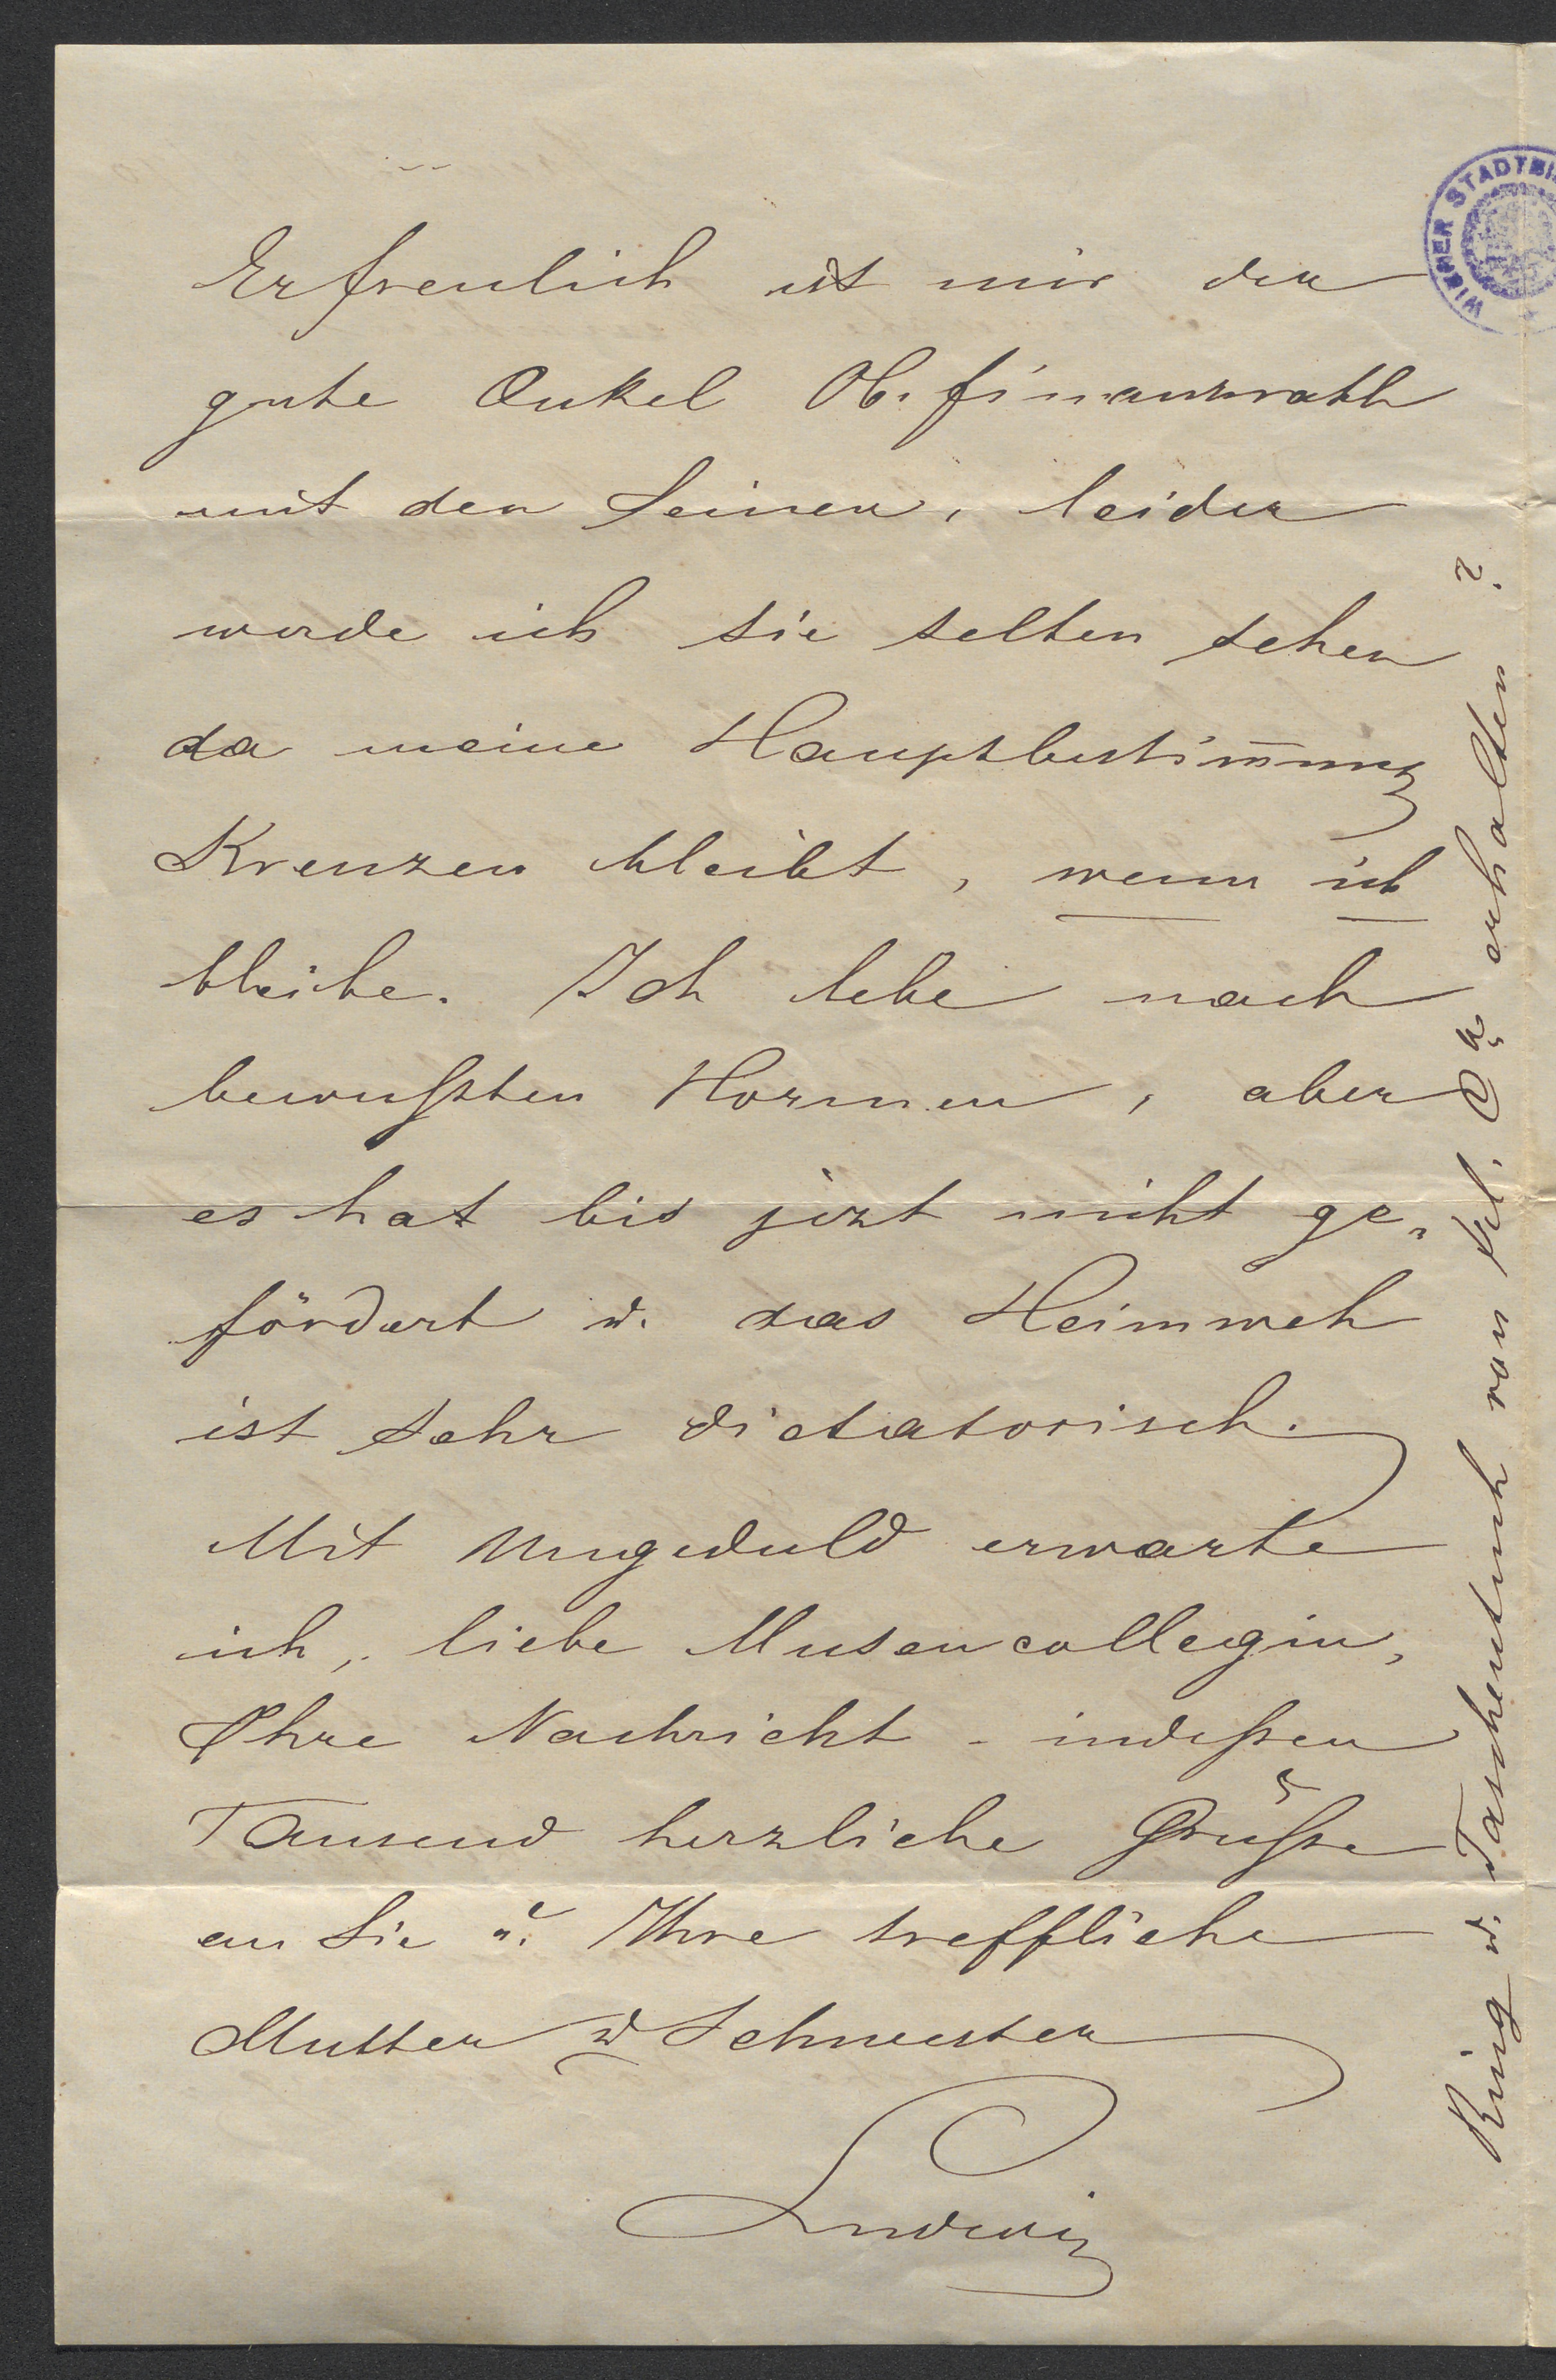 Erfreulich ist mir der
gute Onkel Ob. finanzrath
mit den Seinen, leider
werde ich sie selten sehen
da meine Hauptbestim̄ung
Kreuzen bleibt, wenn ich
bleibe. Ich lebe nach
bewußten Normen, aber
es hat bis jezt nicht ge„
fördert u. das Heimweh
ist sehr dictatorisch.
Mit Ungeduld erwarte
ich, liebe Musencollegin,
Ihre Nachricht - indeßen
Tausend herzliche Grüße
an Sie u. Ihre treffliche
Mutter u Schwester
Ludwig
Ring u. Taschentuch von Frl. erhalten?
WIENER STADTBI